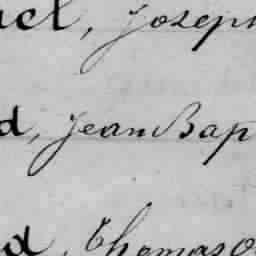 el, Joseph
d, Jean Bap
d, Thomas